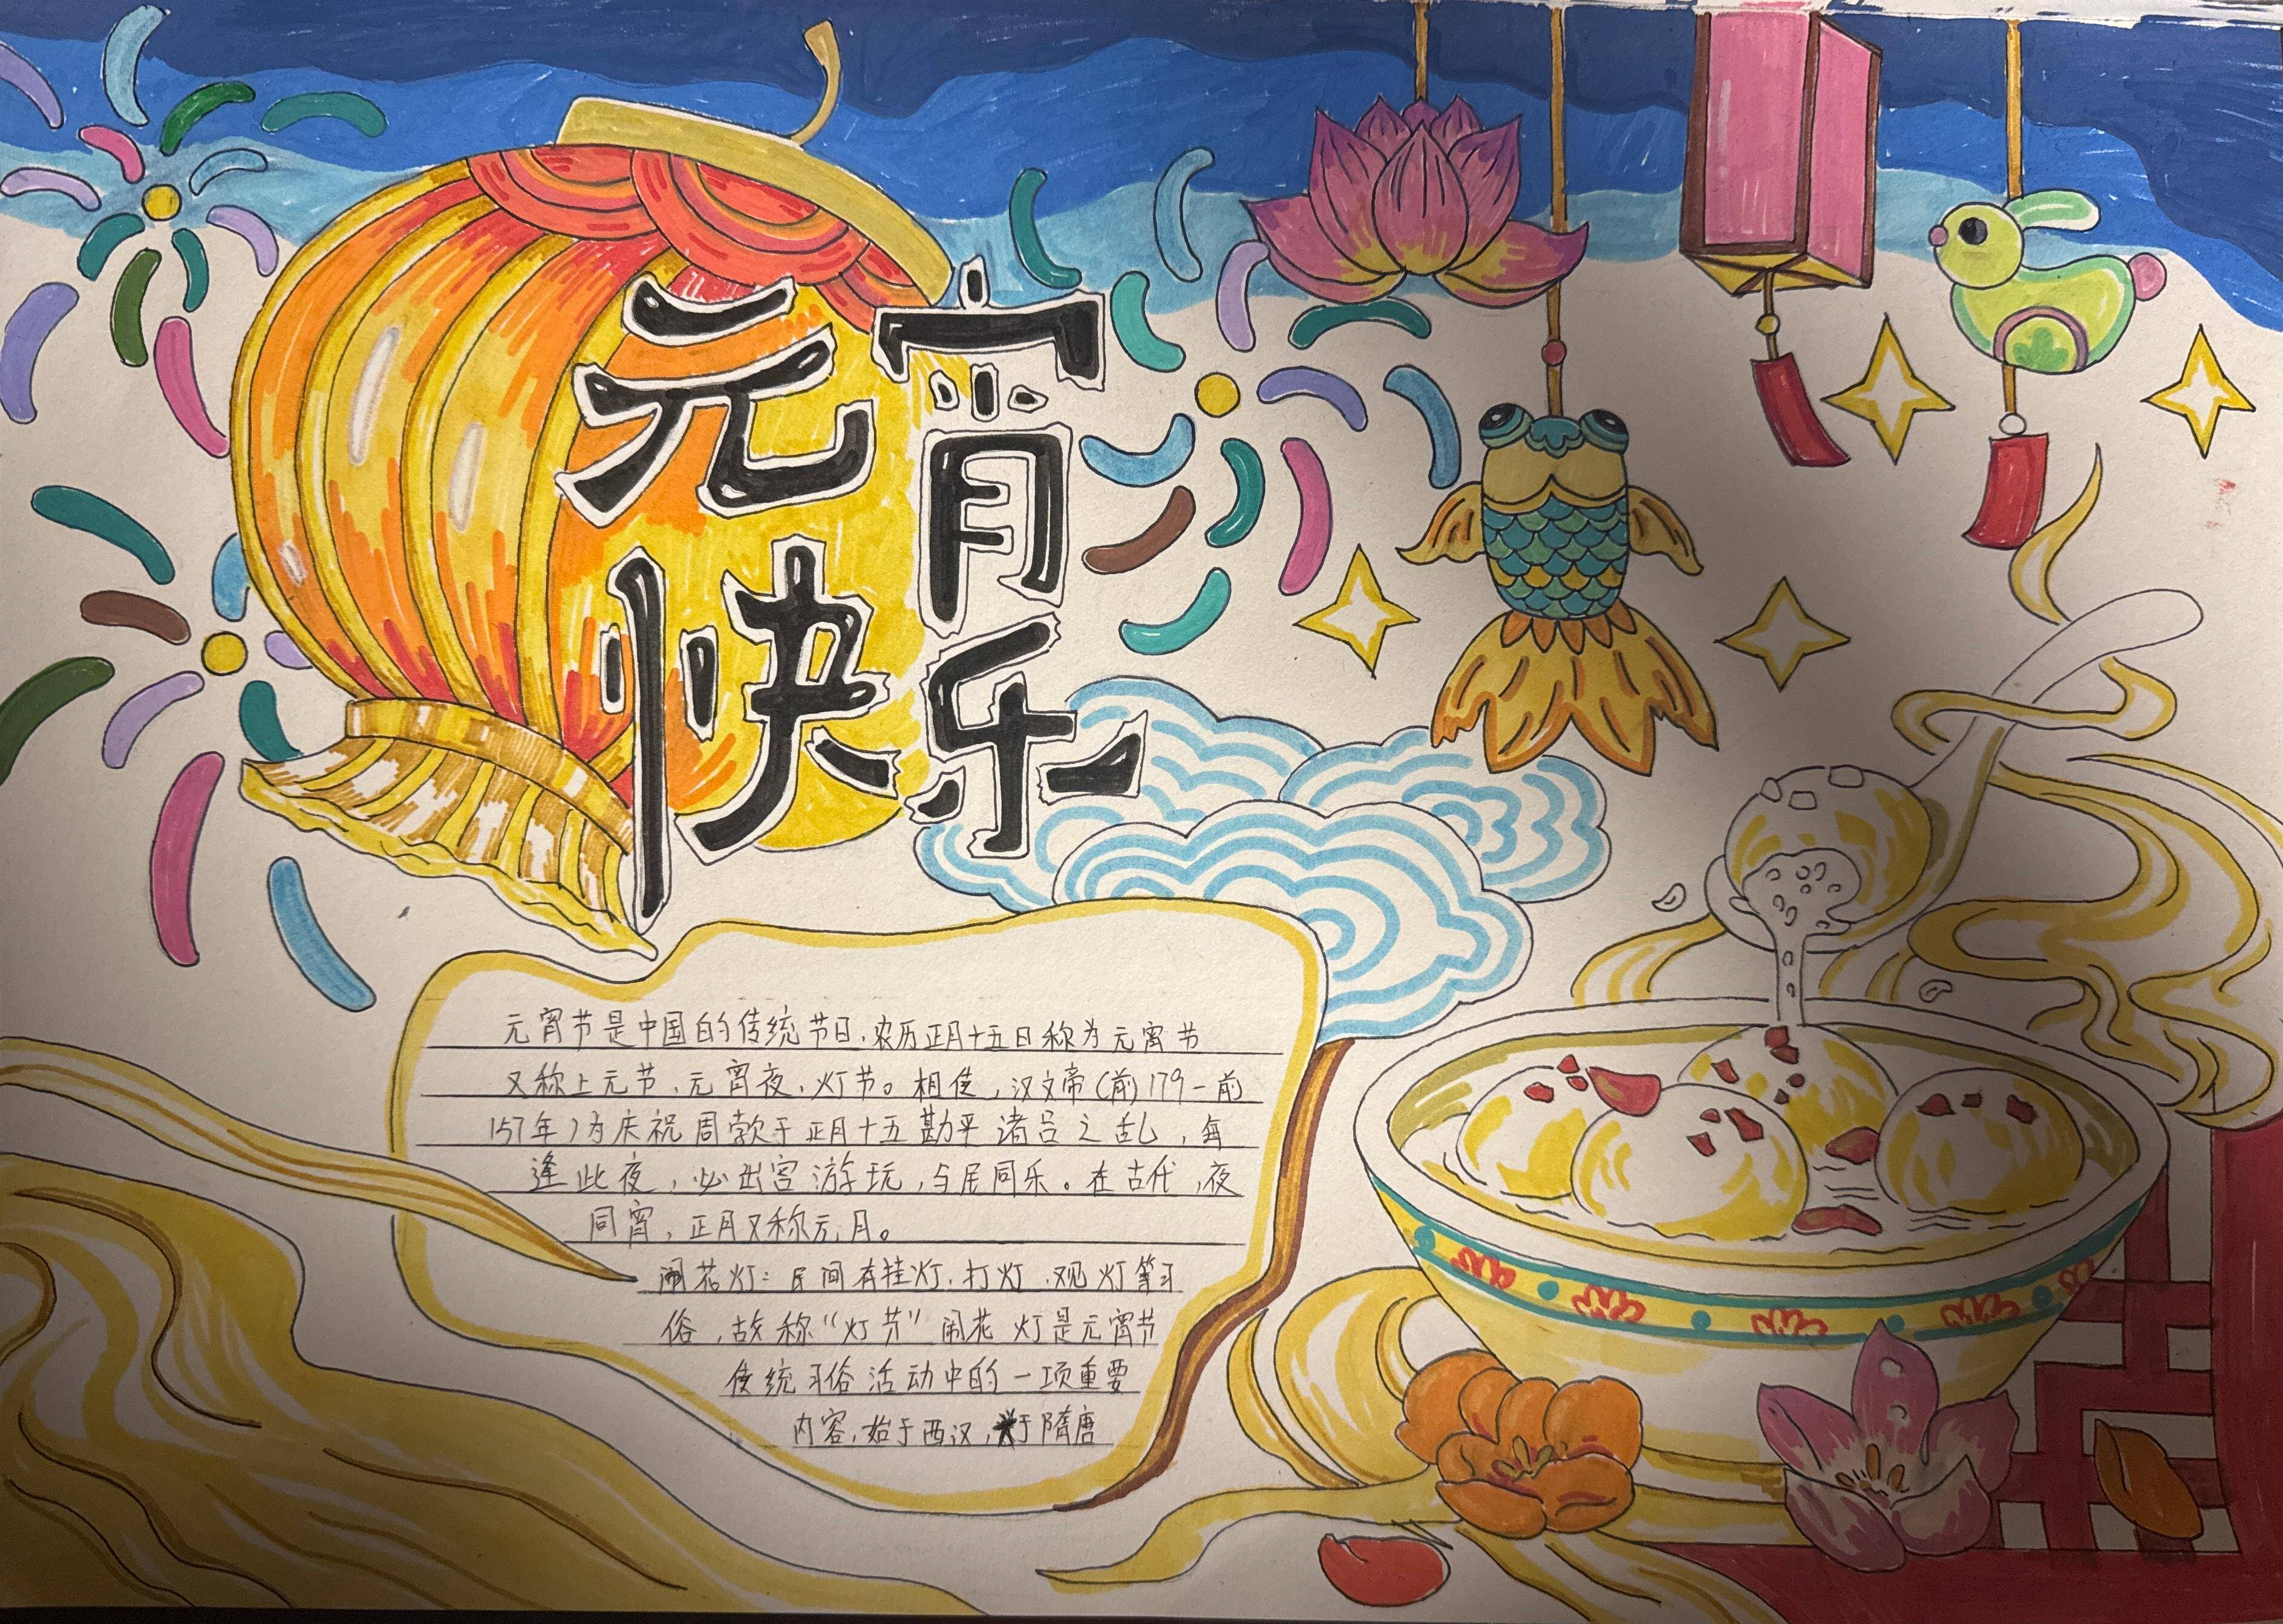 元宵
快乐
元宵节是中国的传统节日,农历正月十五日称为元宵节
又称上元节、元宵夜、灯节。相传,汉文帝(前179-前
157年)为庆祝周勃于正月十五勘平诸吕之乱,每
逢此夜,必出宫游玩,与民同乐。在古代,夜
同宵,正月又称元月。
闹花灯:民间有挂灯、打灯、观灯等习
俗,故称“灯节”闹花灯是元宵节
传统习俗活动中的一项重要
内容,始于西汉,于隋唐